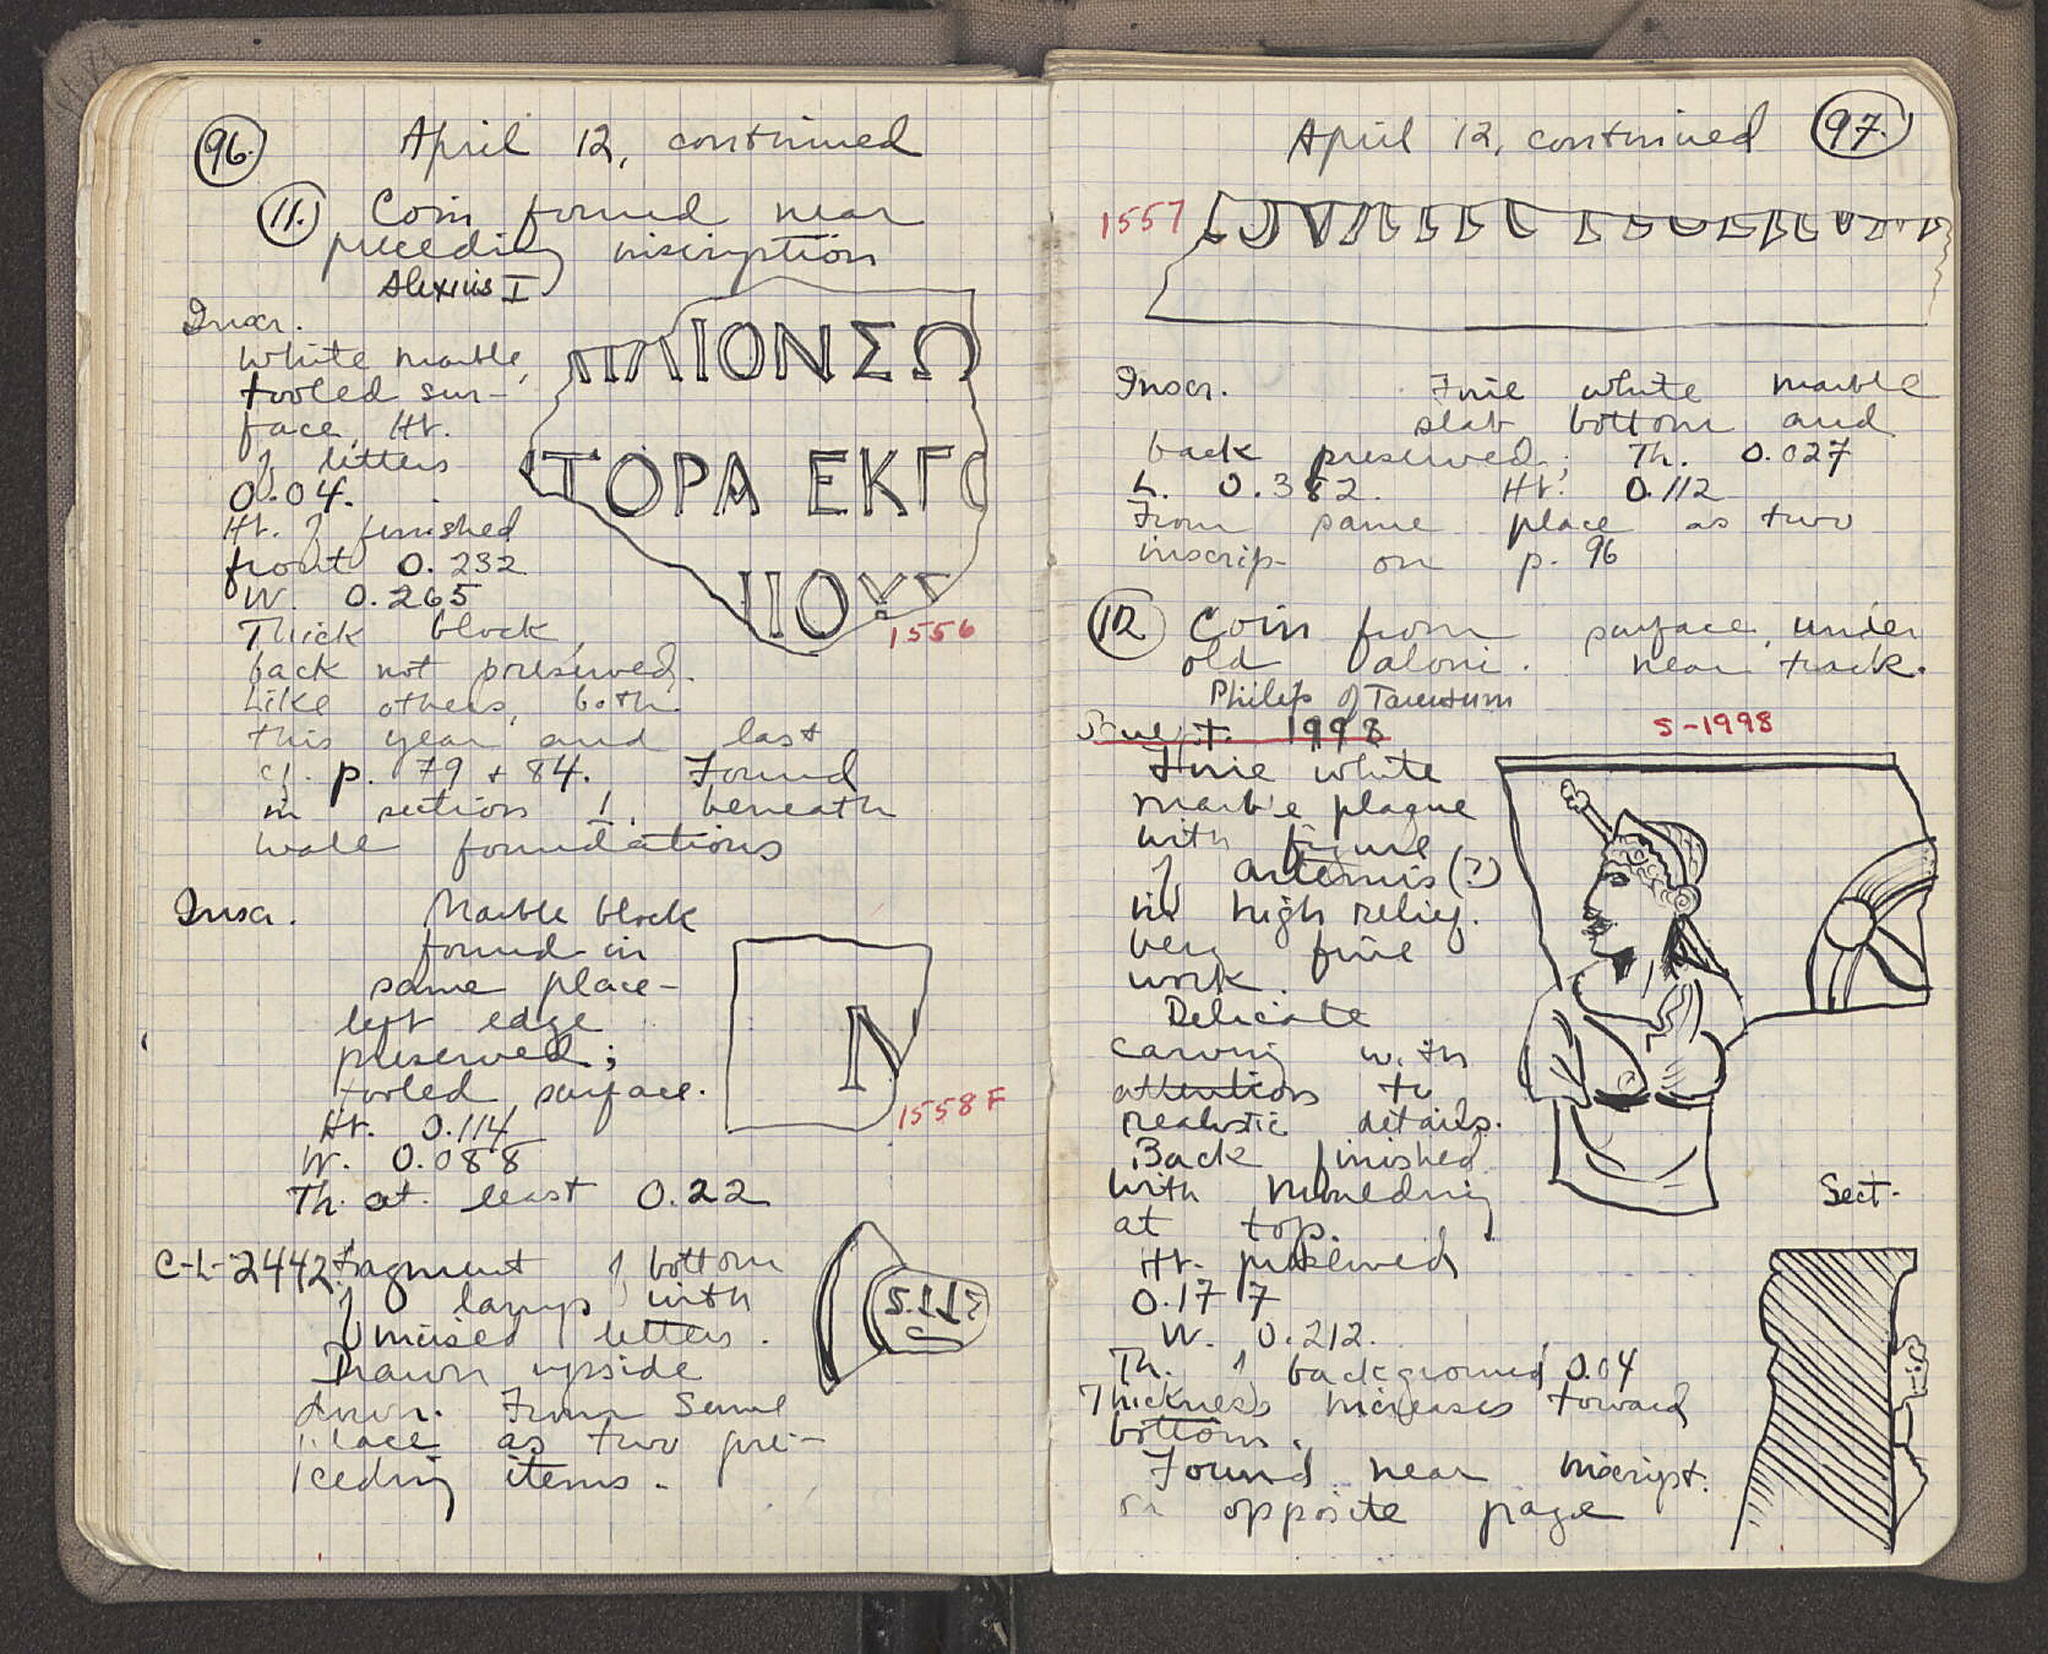 96. April 12, continued
11. Coin found near
preceding inscription
Alexius I
Inscr.
White marble,
tooled sur-
face. Ht.
of letters
0.04.
Ht. of finished
front 0.232
W. 0.265
Thick block,
back not preserved.
Like others, both
this year and last
cf. p. 79 + 84. Found
in section 1, beneath
wall foundations
ΙΟΝΣΩ
ΤΟΡΑ ΕΚΓΟ
ΠΟΥΓ
1556
Inscr. Marble block
found in
same place-
left edge
preserved;
tooled surface.
Ht. 0.114
W. 0.088
Th. at least 0.22
N
1558 F
C-L-2442 Fragment of bottom
of lamp with
incised letters.
Drawn upside
down. From same
place as two pre-
ceding items.
April 12, continued 97.
1557
Inscr. Fine white marble
slab bottom and
back preserved; Th. 0.027
L. 0.382. Ht. 0.112
From same place as two
inscrip- on p. 96
12 Coin from surface, under
old aloni. near track.
Philip of Tarentum
Sculpt. 1998
S-1998
Fine white
marble plaque
with figure
of Artemis (?)
in high relief.
Very fine
work.
Delicate
carving with
attention to
realistic details.
Back finished
with moulding
at top.
Ht. preserved
0.177
W. 0.212.
Th. of background 0.04
Thickness increases toward
bottom.
Found near inscript.
on opposite page
Sect.